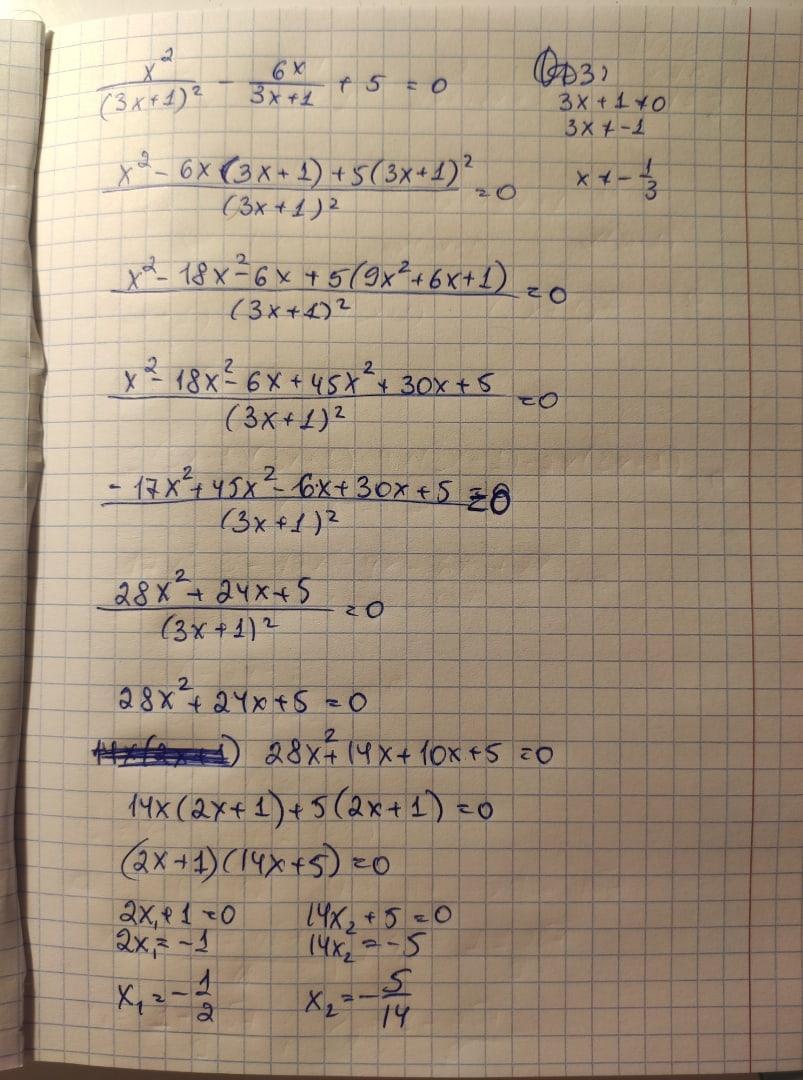 x²/(3x+1)² - 6x/(3x+1) + 5 = 0
ОДЗ:
3x+1≠0
3x≠-1
x≠-1/3
(x²-6x(3x+1)+5(3x+1)²)/(3x+1)² = 0
(x²-18x²-6x+5(9x²+6x+1))/(3x+1)² = 0
(x²-18x²-6x+45x²+30x+5)/(3x+1)² = 0
(-17x²+45x²-6x+30x+5)/(3x+1)² = 0
(28x²+24x+5)/(3x+1)² = 0
28x²+24x+5=0
28x²+14x+10x+5=0
14x(2x+1)+5(2x+1)=0
(2x+1)(14x+5)=0
2x₁+1=0 14x₂+5=0
2x₁=-1 14x₂=-5
x₁=-1/2 x₂=-5/14